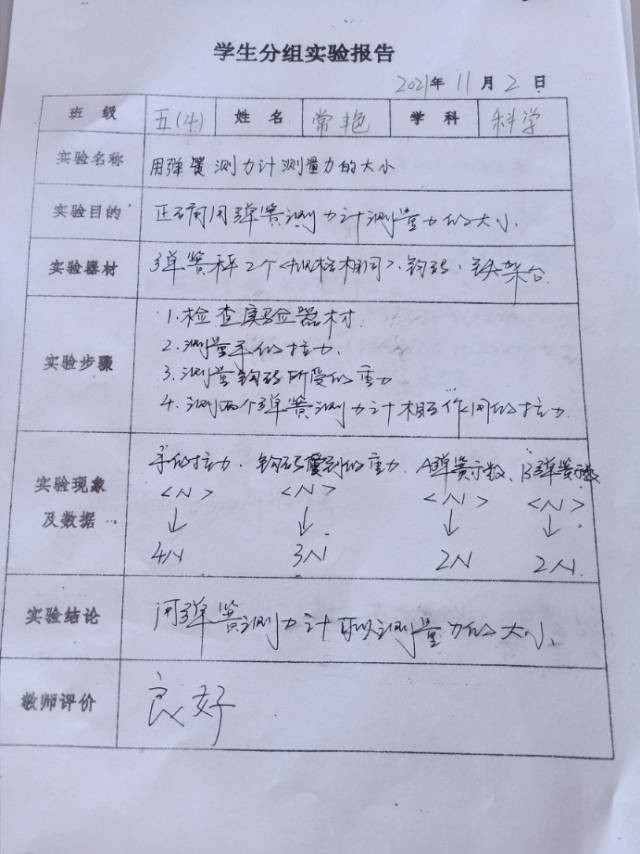 学生分组实验报告
2021年11月2日
班级 五(4) 姓名 常艳 学科 科学
实验名称 用弹簧测力计测量力的大小
实验目的 正确用弹簧测力计测量力的大小.
实验器材 弹簧秤2个<规格相同>、钩码、铁架台.
实验步骤
1.检查实验器材.
2.测量手的拉力.
3.测量钩码所受的重力
4.测两个弹簧测力计相互作用的拉力.
实验现象及数据
手的拉力、钩码受到的重力、A弹簧示数、B弹簧示数
<N> <N> <N> <N>
↓ ↓ ↓ ↓
4N 3N 2N 2N
实验结论 用弹簧测力计可以测量力的大小、
教师评价 良好